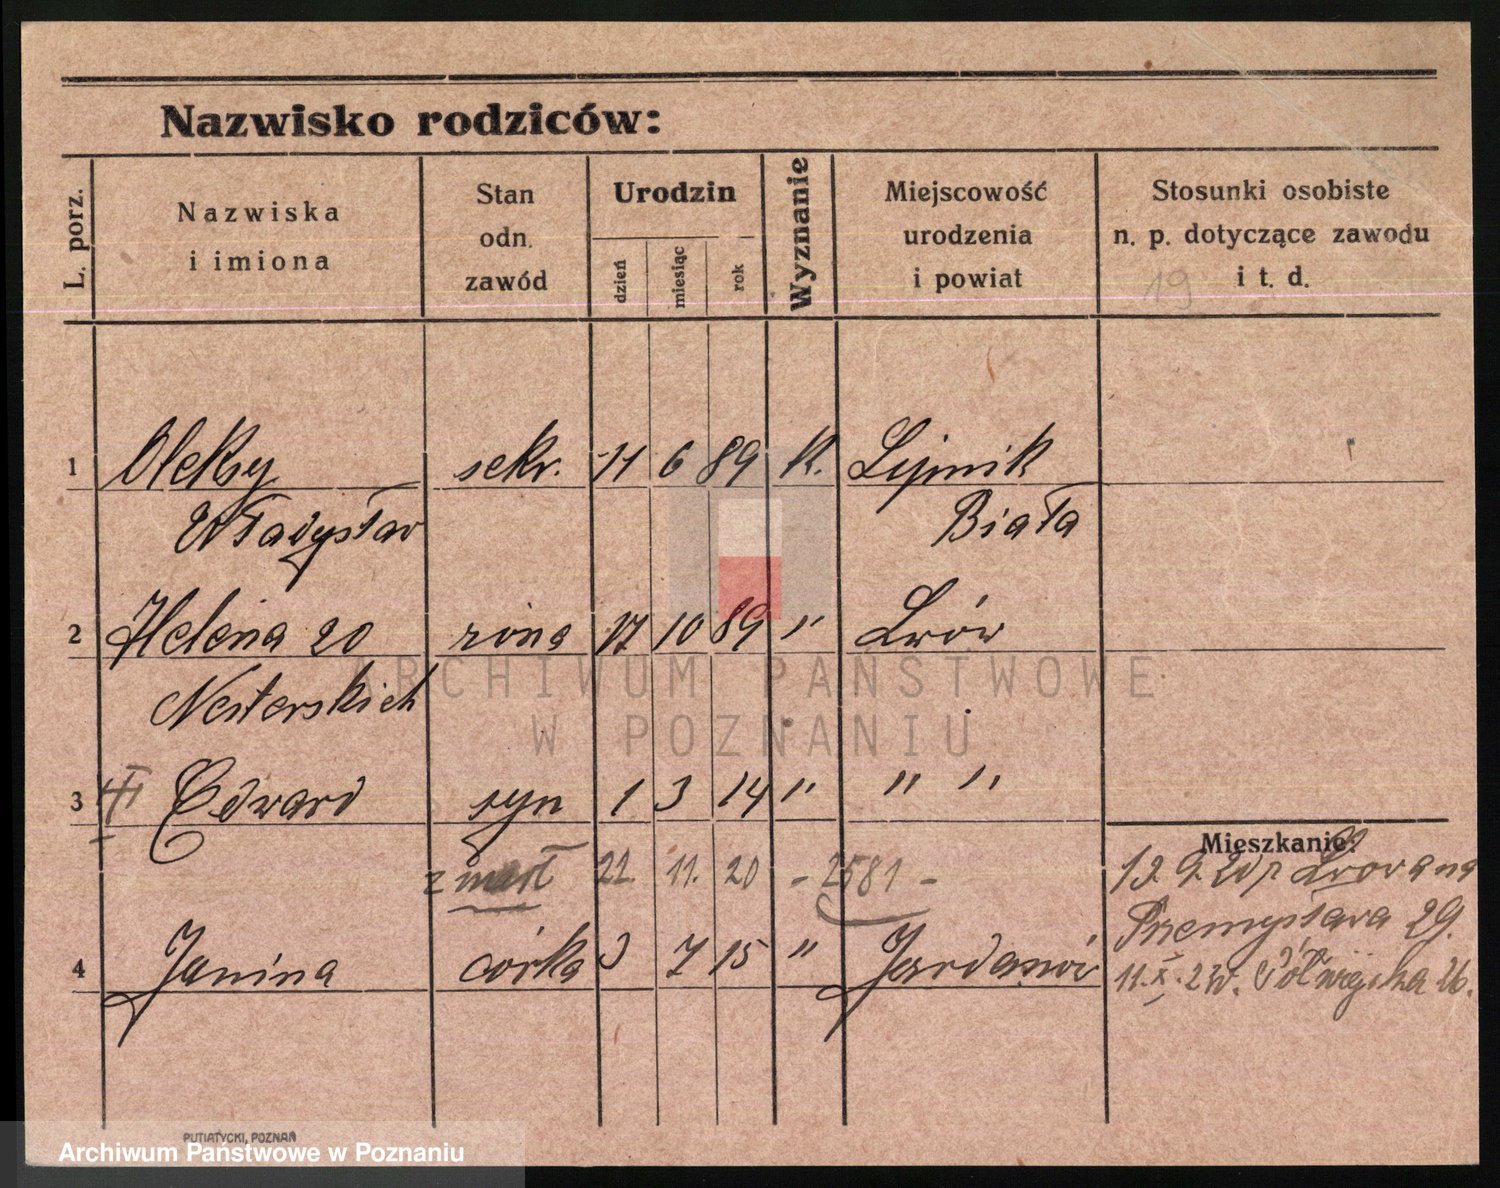 Nazwisko rodziców:
L. porz.
Nazwiska
i imiona
Stan
odn.
zawód
Urodzin
dzień
miesiąc
rok
Wyznanie
Miejscowość
urodzenia
i powiat
Stosunki osobiste
n. p. dotyczące zawodu
i t. d.
19
1 Oleksy sekr. 11 6 89 K. Lipnik
Władysław Biała
2 Helena zd żona 17 10 89 " Lwów
Nesterskich
ARCHIWUM PAŃSTWOWE
W POZNANIU
3 Edward syn 1 3 14 " " "
Mieszkanie:
zmarł 22. 11. 20 - 2581 -
13. 9. 20 z Lwowa na
Przemysława 29.
4 Janina córka 3 7 15 "
11. X. 20. Półwiejska 26.
PUTIATYCKI, POZNAŃ
Archiwum Państwowe w Poznaniu